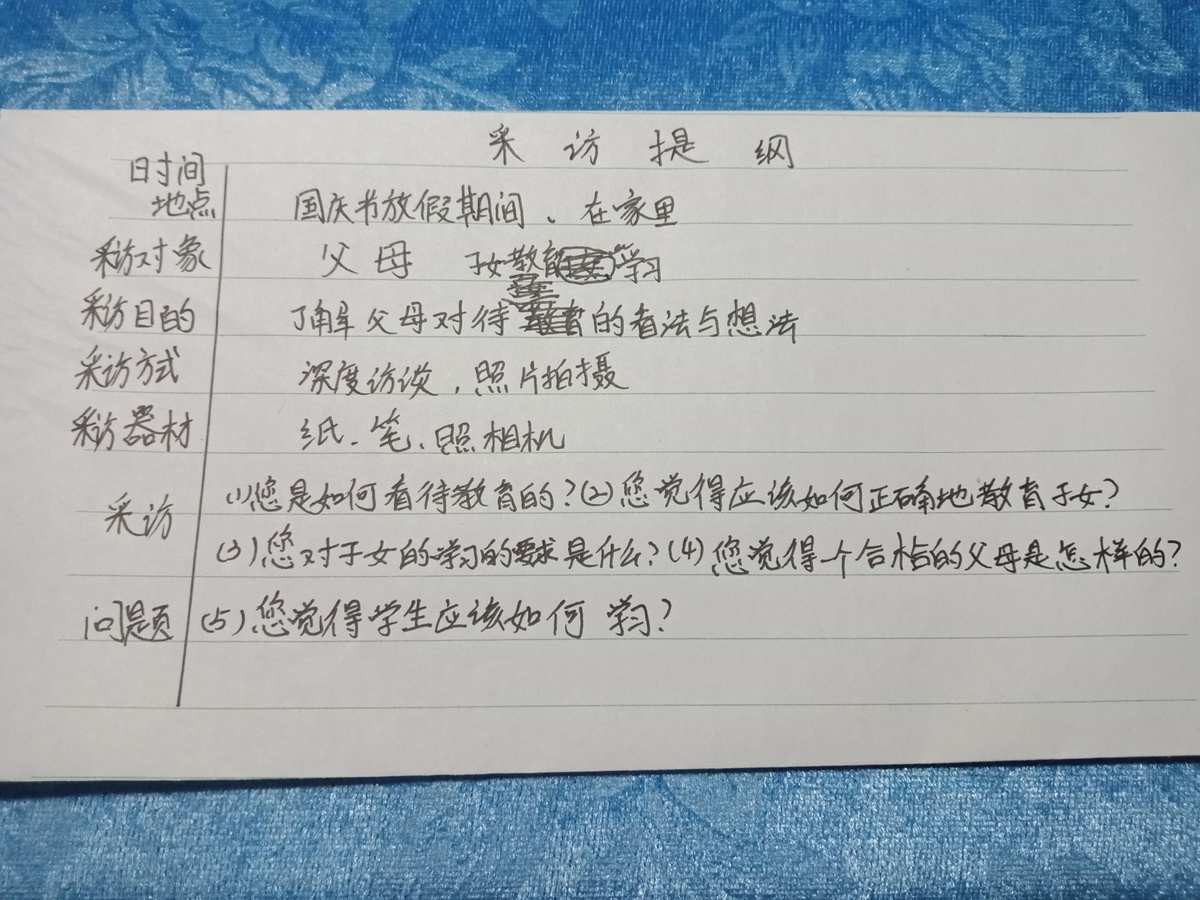 采访提纲
时间
地点 国庆节放假期间、在家里
采访对象 父母 子女教育 学习
采访目的 了解父母对待 的看法与想法
采访方式 深度访谈，照片拍摄
采访器材 纸、笔、照相机
采访 (1)您是如何看待教育的?(2)您觉得应该如何正确地教育子女?
(3)您对子女的学习的要求是什么?(4)您觉得一个合格的父母是怎样的?
问题 (5)您觉得学生应该如何学习?